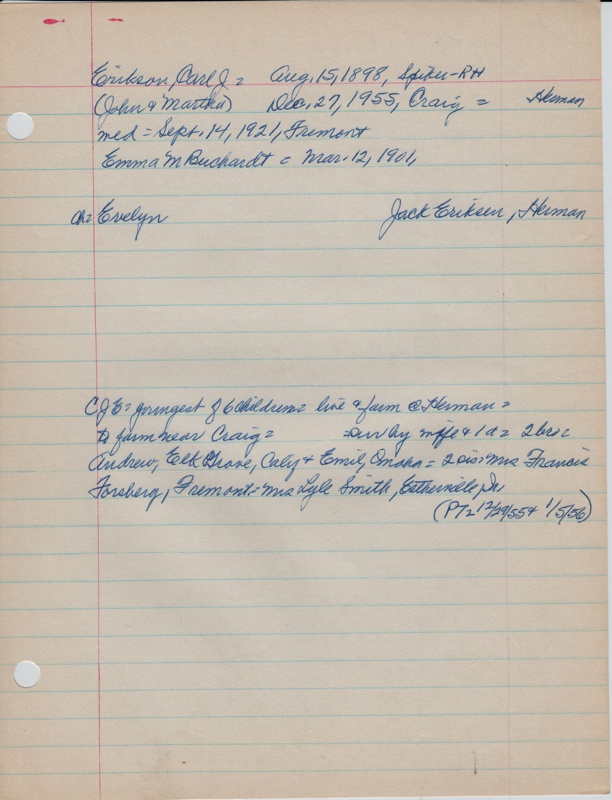 Erikson, Carl J = Aug. 15, 1898, Spiker-RH
(John & Martha) Dec. 27, 1955, Craig = Herman
med = Sept. 14, 1921, Fremont
Emma M Buchardt = Mar. 12, 1901,
ch = Evelyn Jack Eriksen, Herman
CJE = youngest of 6 children = live & farm @ Herman =
farm near Craig = sur by wife & 1 d = 2 bro =
Andrew, Elk Grove, Caly & Emil, Omaha = 2 sis = Mrs Francis
Forsberg, Fremont = Mrs Lyle Smith, Estherville, Ia
(PT = 12/29/55 & 1/5/56)